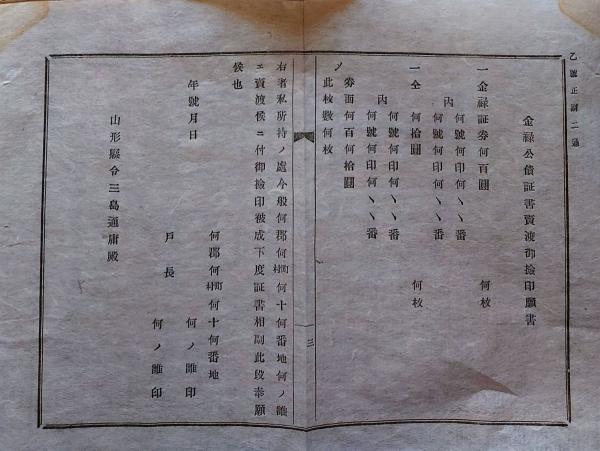 乙號正副二通
金祿公債証書賣渡御撿印願書
一金祿証券何百圓　何枚
内　何號何印何ヽヽ番
何號何印何ヽヽ番
一仝　何拾圓　何枚
内　何號何印何ヽヽ番
何號何印何ヽヽ番
〆券面何百何拾圓
此枚數何枚
三
右者私所持ノ處今般何郡何町村何十何番地何ノ誰
エ賣渡候ニ付御撿印被成下度証書相副此段奉願
候也
年號月日
何郡何町村何十何番地
何ノ誰印
戸長　何ノ誰印
山形縣令三島通庸殿